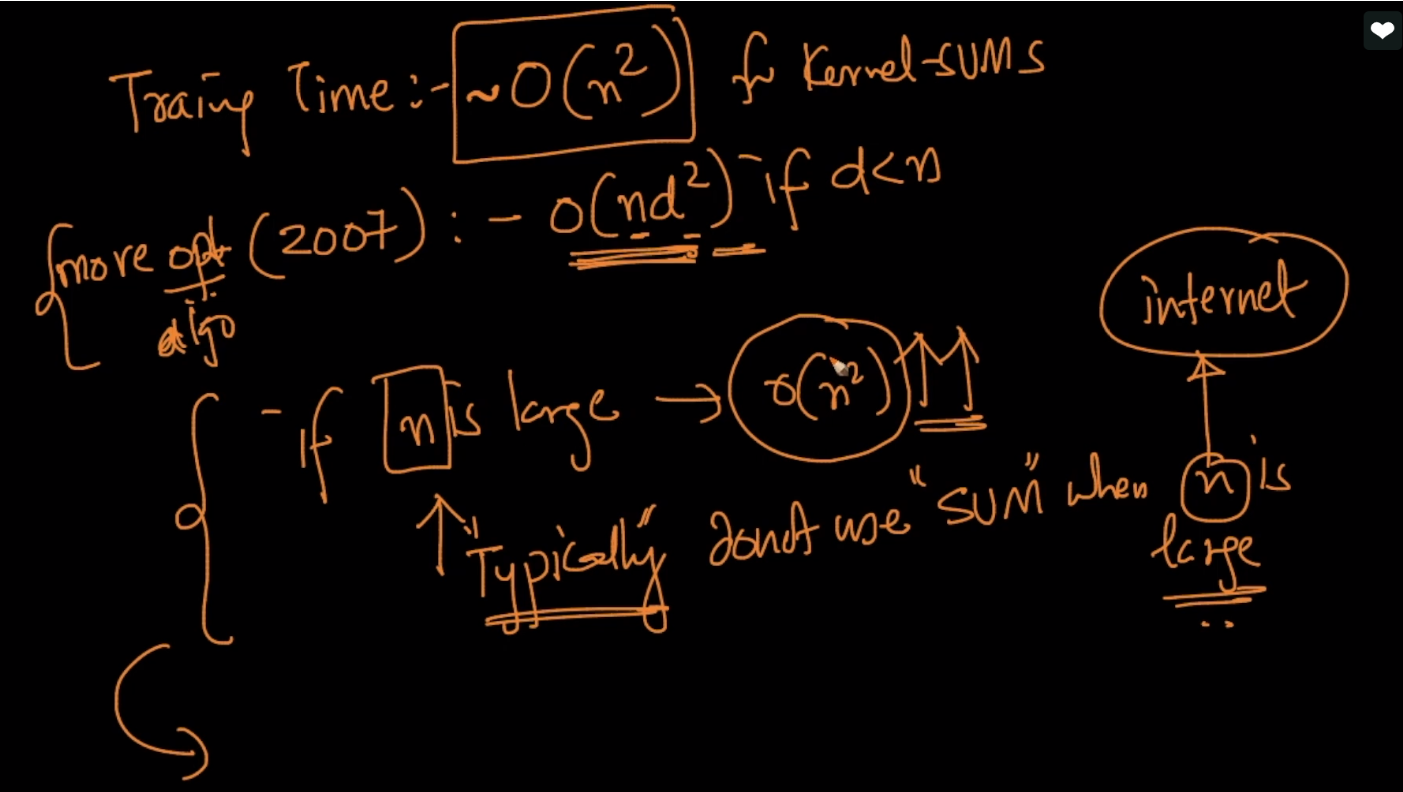 Traing Time:- ~O(n²) for Kernel-SVMs
{more opt (2007) :- O(nd²) if d<n
algo
internet
- if n is large → O(n²) ↑↑↑
↑ "Typically" donot use "SVM" when n is
large